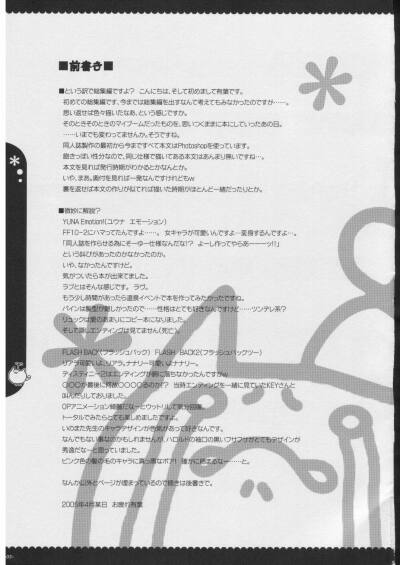 ■前書き■
■という訳で総集編ですよ？ こんにちは、そして初めまして有葉です。
初めての総集編です、今までは総集編を出すなんて考えてもみなかったのですが……。
思い返せば色々描いたなあ、という感じですか。
そのときそのときのマイブームだったものを、思いつくままに本にしていったあの日。
……いまでも変わってませんか。そうですね。
同人誌製作の最初から今まですべて本文はPhotoshopを使っています。
飽きっぽい性分なので、同じ仕様で描いてある本文はあんまり無いですね…。
本文を見れば発行時期がわかるとかなんとか。
いや、まあ。奥付を見れば一発なんですけれどもw
裏を返せば本文の作りが似てれば描いた時期がほとんど一緒だったりとか。
■微妙に解説？
YUNA Emotion!(ユウナ エモーション)
FF10-2にハマッてたんですよ……。女キャラが可愛いんですよ…変身するんですよ…。
「同人誌を作らせる為にそーゆー仕様なんだな!？ よーし作ってやらあーーーッ!」
という叫びがあったのかなかったのか。
いや、なかったんですけど。
気がついたら本が出来てました。
ラブとはそんな感じです。ラヴ。
もう少し時間があったら温泉イベントで本を作ってみたかったですね。
パインは髪型が難しかったので……性格はとても好きなんですけど……ツンデレ系?
リュックは愛のあまりにコピー本になりました。
そして寂しエンディングは見てません(死亡)。
FLASH BACK(フラッシュバック) FLASH BACK2(フラッシュバックツー)
リアラ可愛いよリアラ。ナナリー可愛いよナナリー。
ディスティニー2はエンディングが腑に落ちなかったんですがw
○○○が最後に何故○○○○るのか!? 当時エンディングを一緒に見ていたKEYさんと
叫んだりしておりました。
OPアニメーション綺麗だなーとウットリして第労回復。
トータルでみたらとても楽しめましたですよ。
いのまた先生のキャラデザインが色気があって好きなんです。
なんでもない事なのかもしれませんが、ハロルドの袖口の黒いフサフサがとてもデザインが
秀逸だなーと思っていました。
ピンク色の髪の毛のキャラに真っ黒なボア! 確かに絶まるなー……と。
なんか以外とページが埋まっているので続きは後書きで。
2005年4月某日 お疲れ有葉